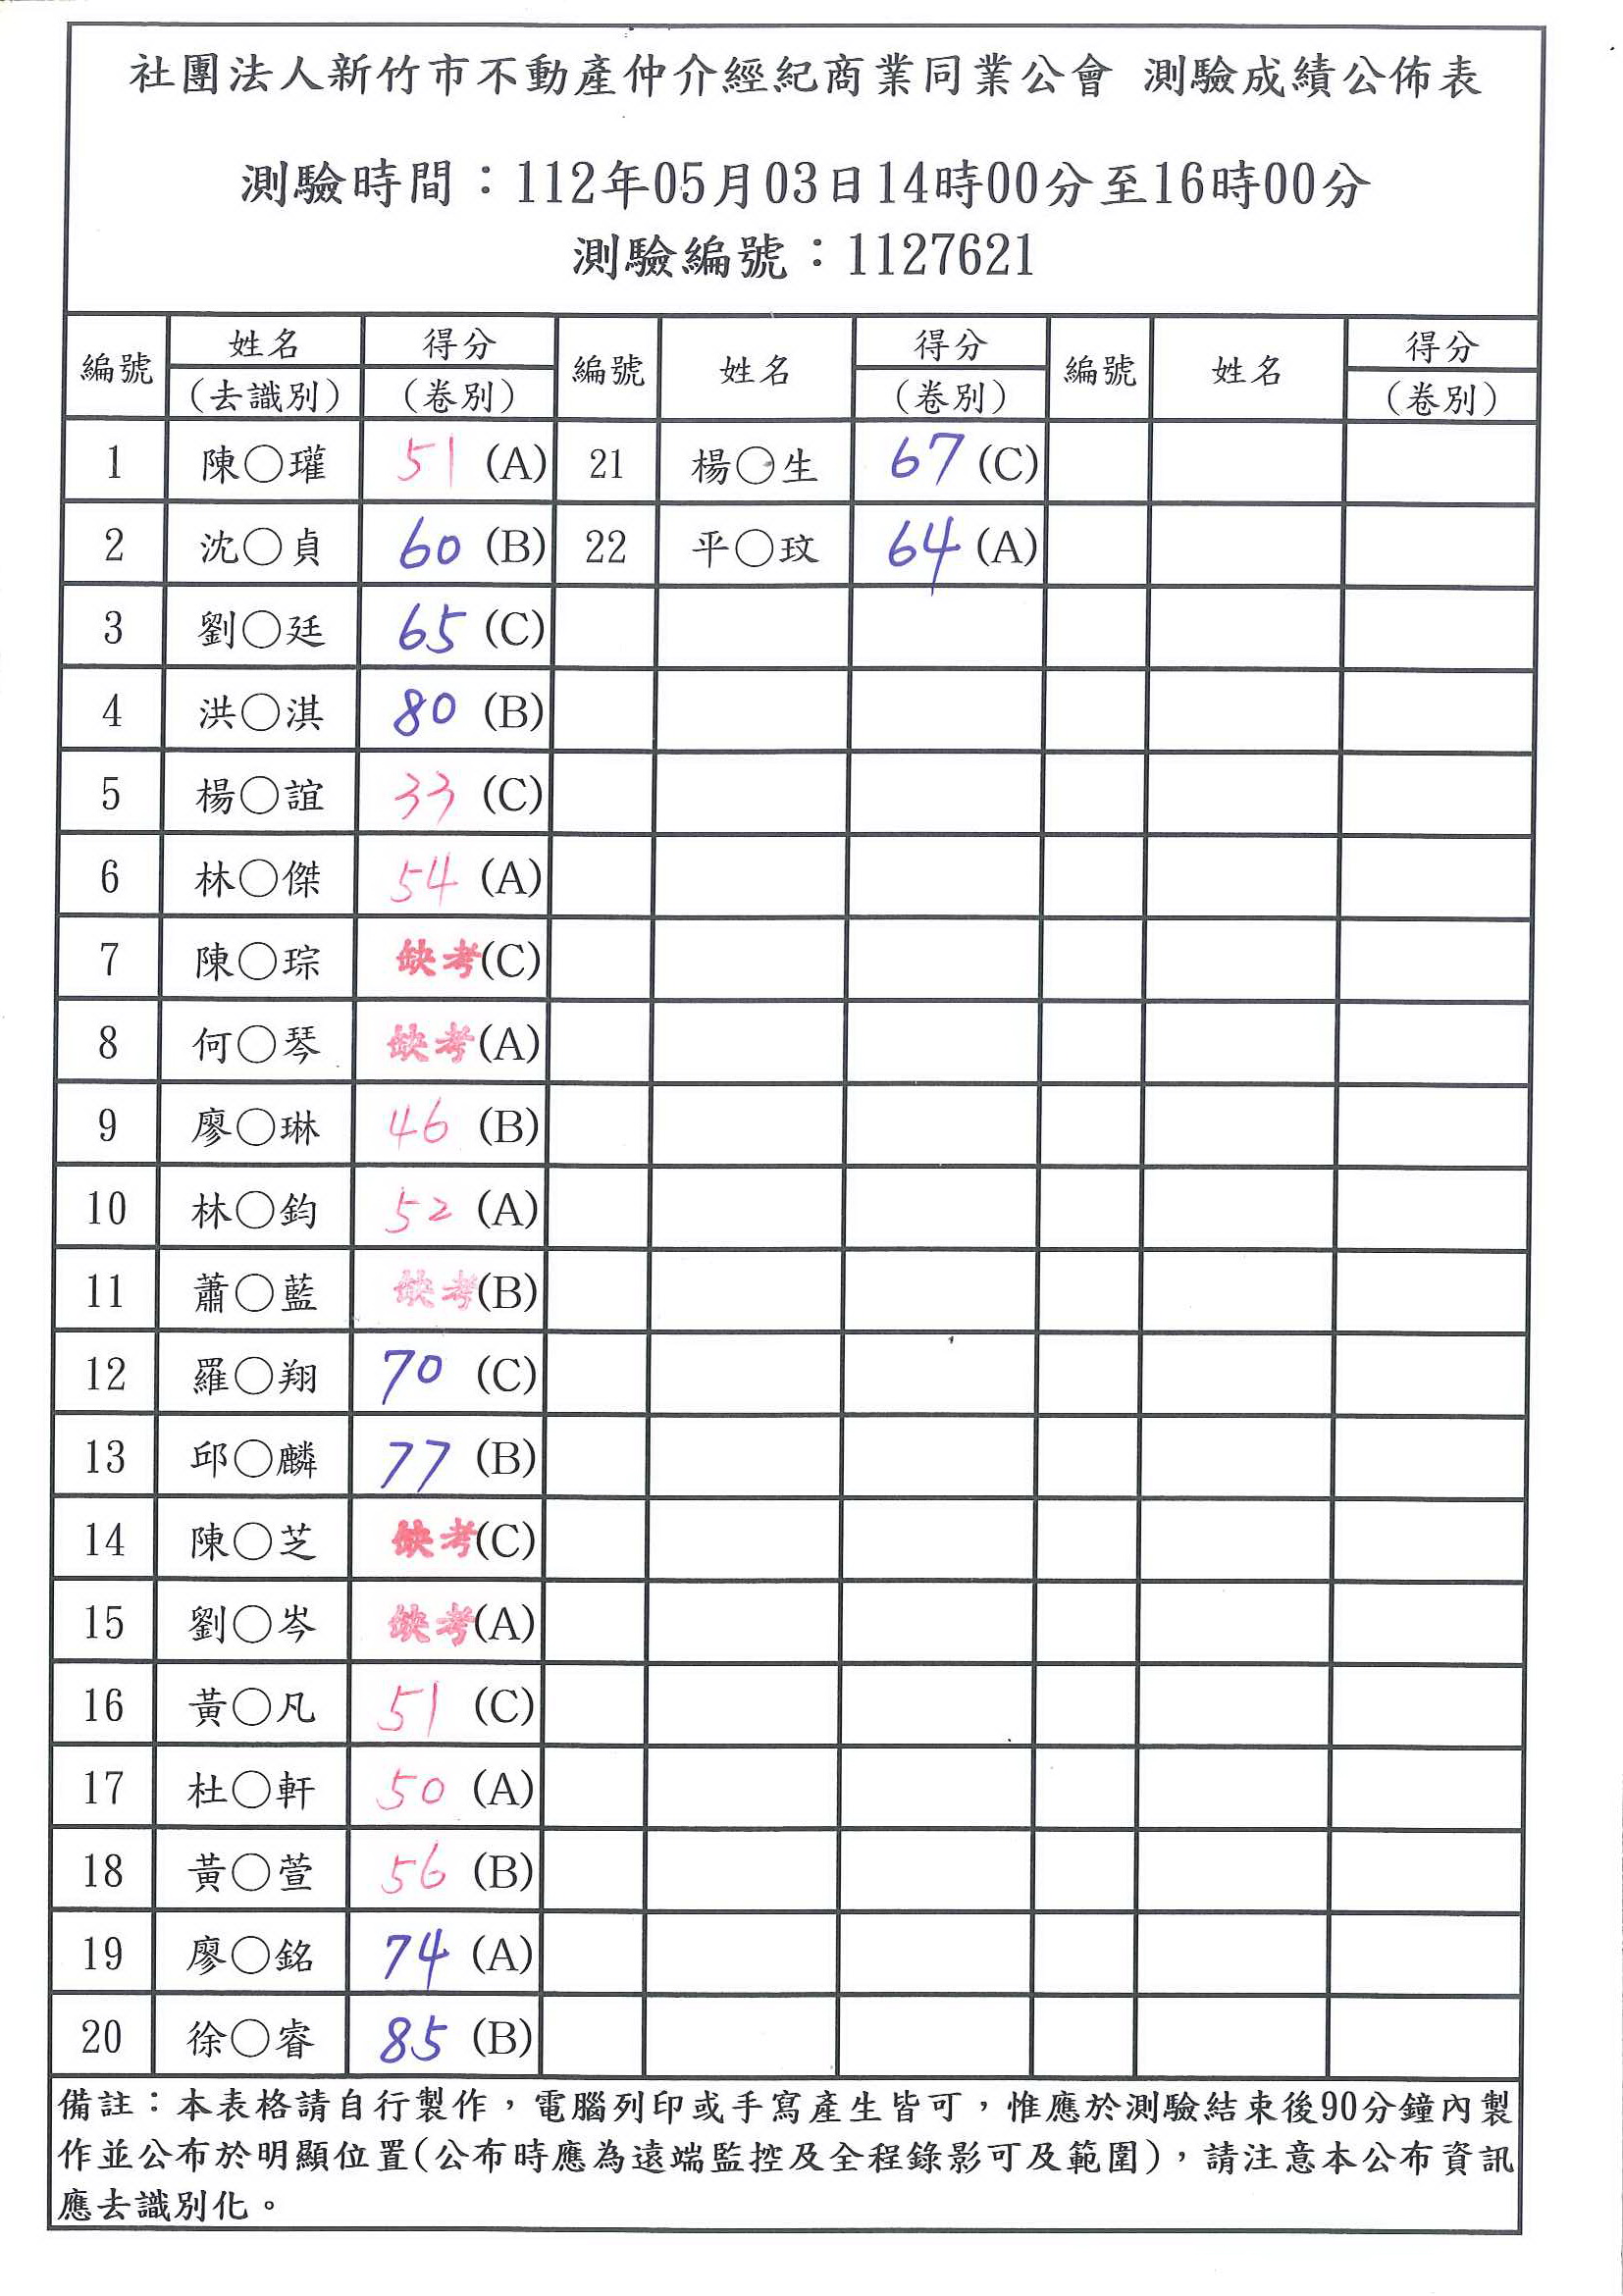 社團法人新竹市不動產仲介經紀商業同業公會 測驗成績公佈表
測驗時間：112年05月03日14時00分至16時00分
測驗編號：1127621
編號 姓名 得分 編號 姓名 得分 編號 姓名 得分
(去識別) (卷別) (卷別) (卷別)
1 陳○瓘 51 (A) 21 楊○生 67 (C)
2 沈○貞 60 (B) 22 平○玟 64 (A)
3 劉○廷 65 (C)
4 洪○淇 80 (B)
5 楊○誼 33 (C)
6 林○傑 54 (A)
7 陳○琮 缺考(C)
8 何○琴 缺考(A)
9 廖○琳 46 (B)
10 林○鈞 52 (A)
11 蕭○藍 缺考(B)
12 羅○翔 70 (C)
13 邱○麟 77 (B)
14 陳○芝 缺考(C)
15 劉○岑 缺考(A)
16 黃○凡 51 (C)
17 杜○軒 50 (A)
18 黃○萱 56 (B)
19 廖○銘 74 (A)
20 徐○睿 85 (B)
備註：本表格請自行製作，電腦列印或手寫產生皆可，惟應於測驗結束後90分鐘內製
作並公布於明顯位置(公布時應為遠端監控及全程錄影可及範圍)，請注意本公布資訊
應去識別化。